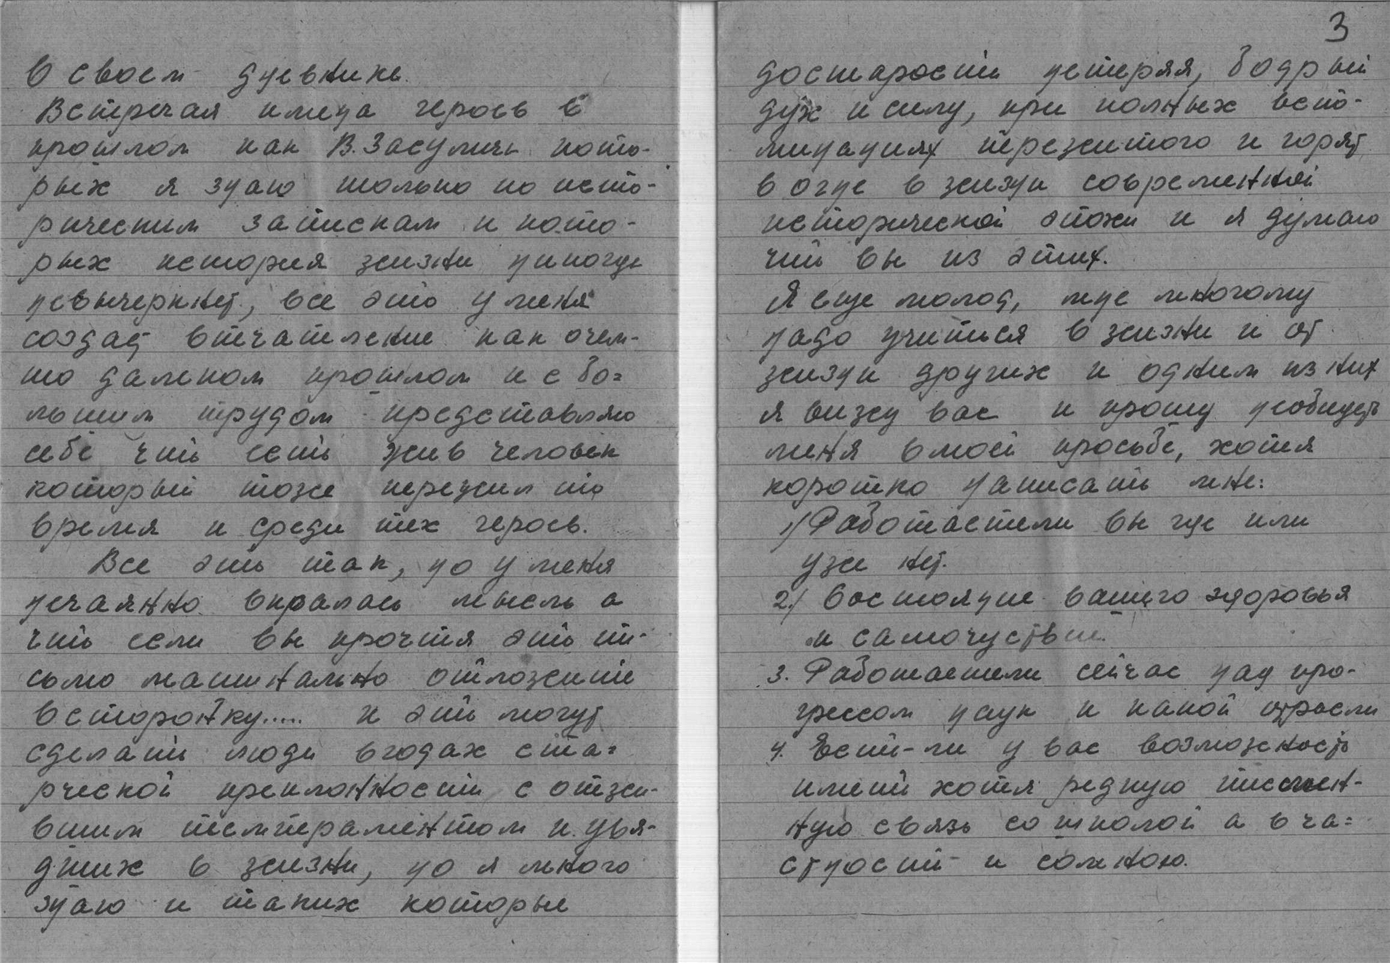 В своем дневнике.
Встречая имена героев в
прошлом как В. Засулич кото-
рых я знаю только по исто-
рическим запискам и кото-
рых история жизни никогда
невычеркнет, все это у меня
создает впечатление как о чем-
то далеком прошлом и с бо=
льшим трудом представляю
себе что есть жив человек
который тоже пережил то
время и среди тех героев.
Все это так, но у меня
нечаянно вкралась мысль а
что если вы прочтя это пи-
сьмо машинально отложите
в сторонку..... и это могут
сделать люди в годах ста=
рческой преклонности с отжи-
вшим темпераментом и увя-
дших в жизни, но я много
знаю и таких которые
3
достарости нетеряя, бодрый
дух и силу, при полных воспо-
минаниях пережитого и горят
в огне в жизни современной
исторической эпохи и я думаю
что вы из этих.
Я еще молод, мне многому
надо учиться в жизни и от
жизни других и одним из них
я вижу вас и прошу необидеть
меня в моей просьбе, хотя
коротко написать мне:
1) Работаетели вы где или
уже нет.
2) Состояние вашего здоровья
и самочуствие.
3. Работаетели сейчас над про-
грессом наук и какой отрасли
4. Есть-ли у вас возможность
иметь хотя редкую писмен-
ную связь со школой а в ча=
стности и сомною.